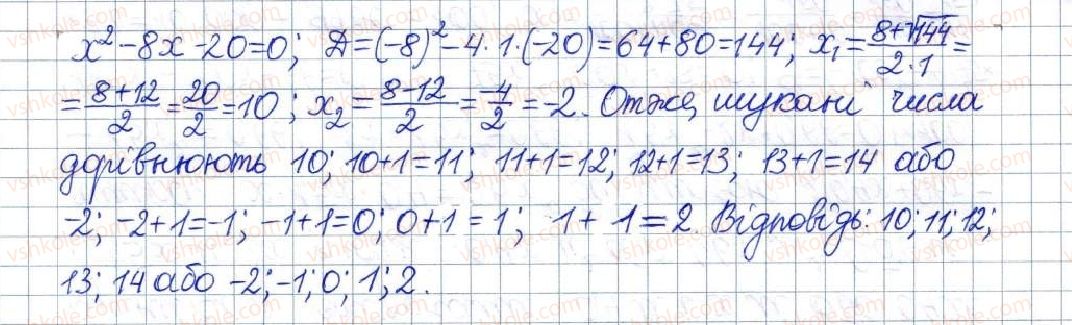 x² - 8x - 20 = 0; Д = (-8)² - 4·1·(-20) = 64 + 80 = 144; x₁ = (8+√144)/(2·1) =
= (8+12)/2 = 20/2 = 10; x₂ = (8-12)/2 = -4/2 = -2. Отже, шукані числа
дорівнюють 10; 10+1=11; 11+1=12; 12+1=13; 13+1=14 або
-2; -2+1=-1; -1+1=0; 0+1=1; 1+1=2. Відповідь: 10; 11; 12;
13; 14 або -2; -1; 0; 1; 2.